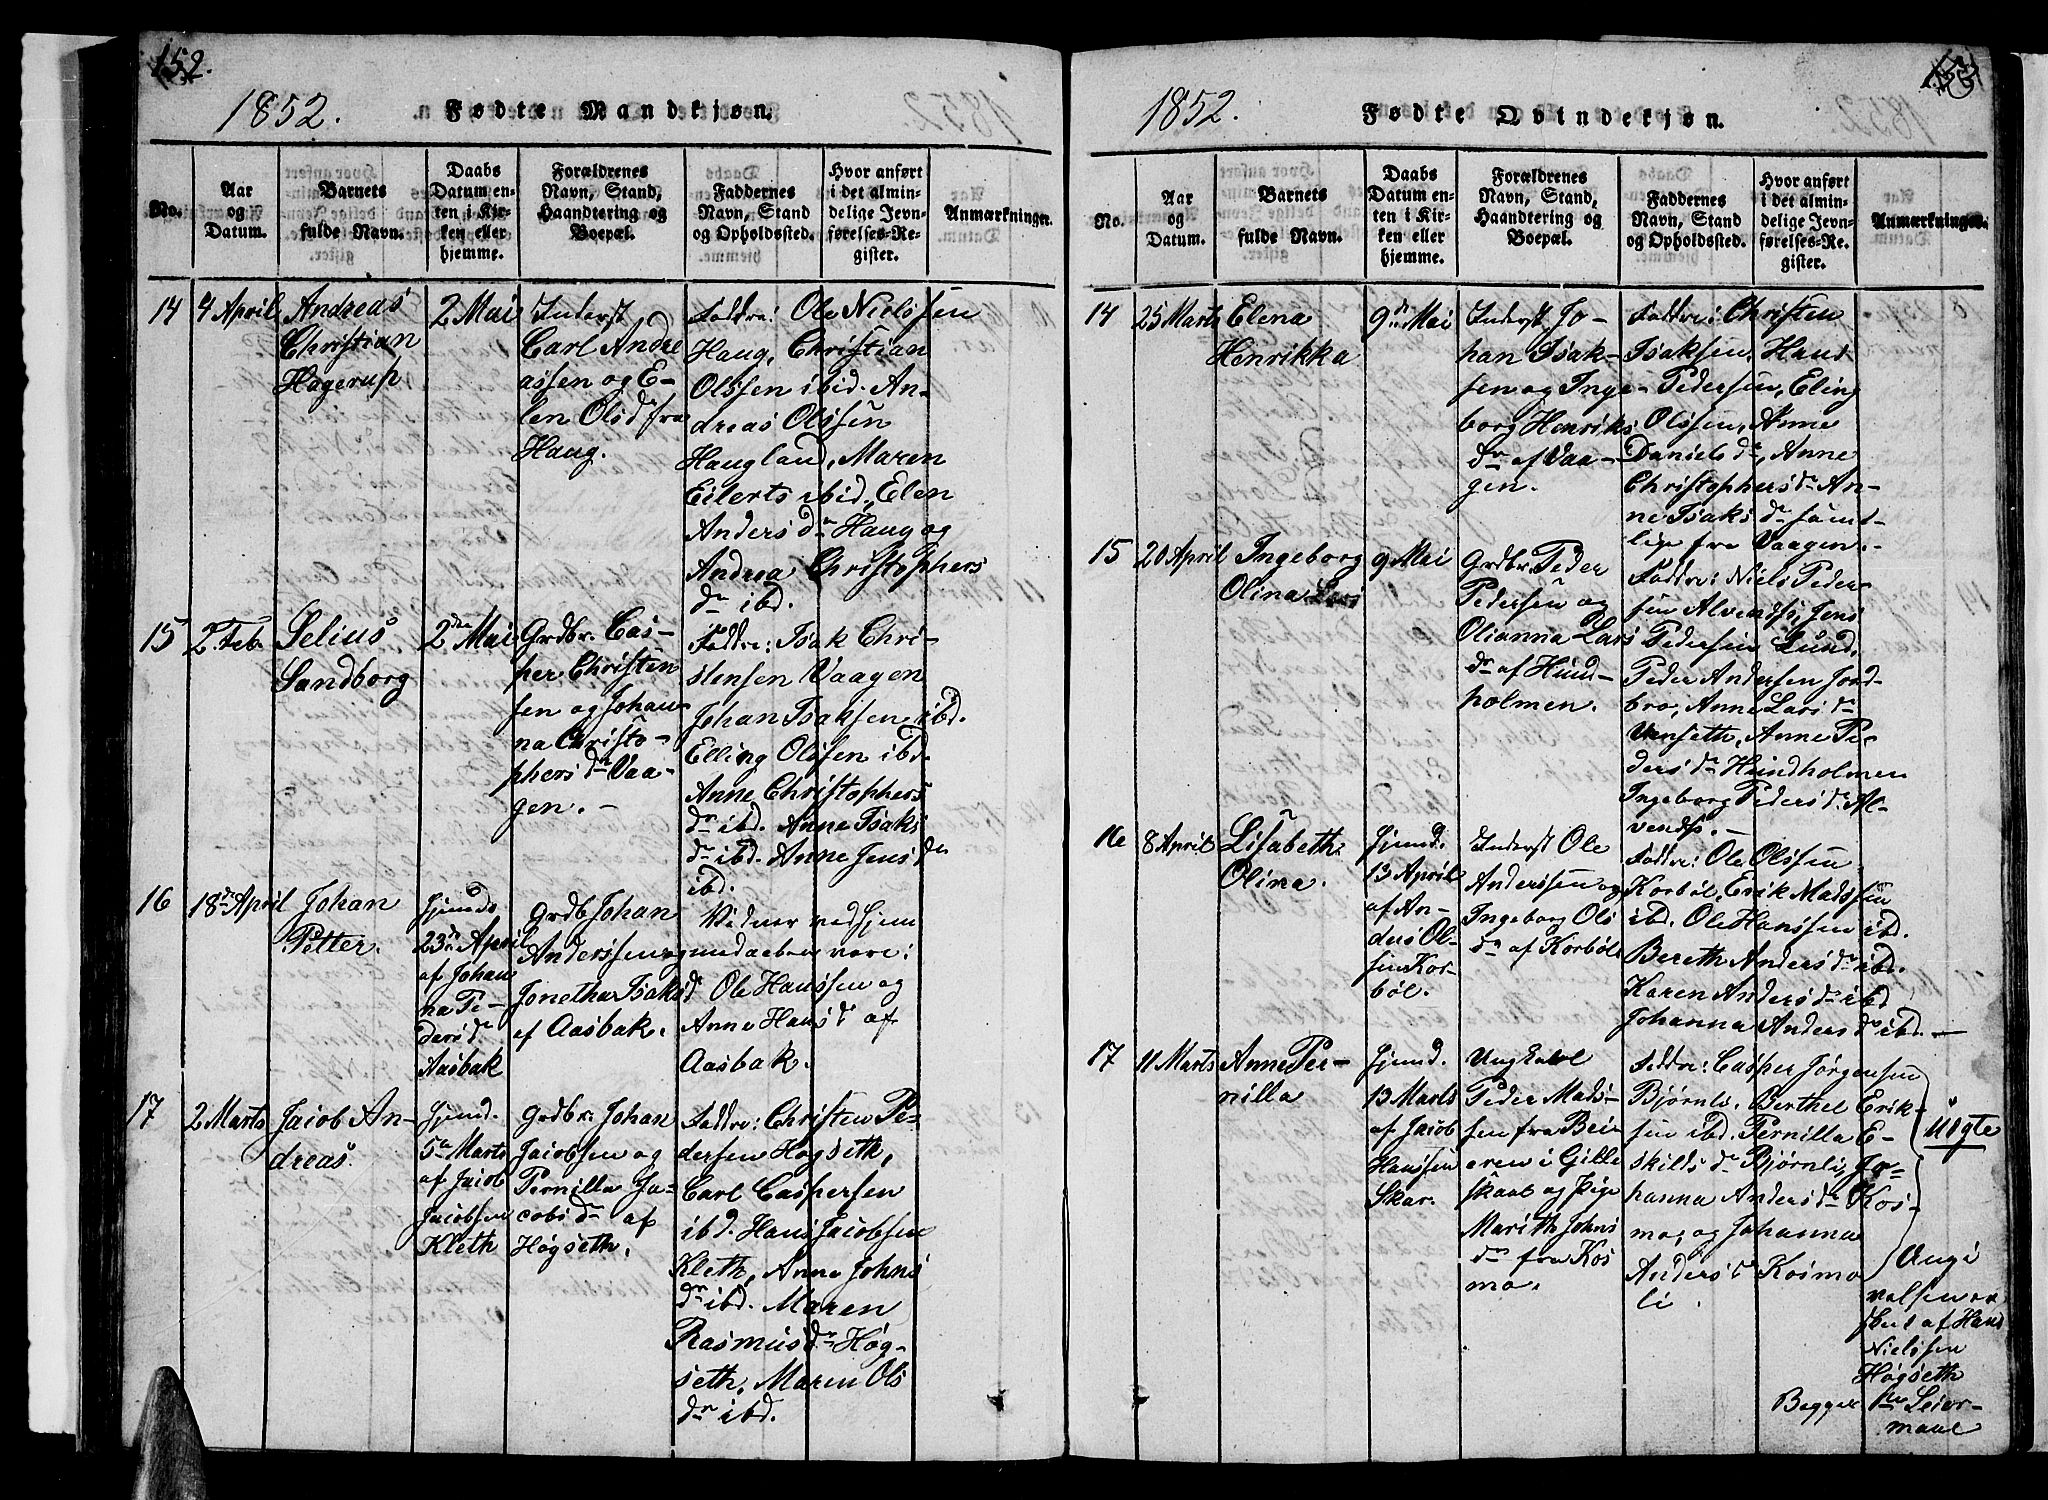 152.
1852.
Fødte Mandkjøn.
No.
Aar
og
Datum.
Barnets
fulde Navn.
Daabs
Datum en-
ten i Kir-
ken eller
hjemme.
Forældrenes
Navn, Stand,
Haandtering og
Boepæl.
Faddernes
Navn, Stand
og Opholdssted.
Hvor anført
i det almin-
delige Jevn-
førelses-Re-
gister.
Anmærkninger.
14
4 April
Andreas
Christian
Hagerup
2 Mai
Inderst
Carl Andre
assen og E-
len Olsdr fra
Haug.
Faddre: Ole Nielssen
Haug, Christian
Olssen ibid. An-
dreas Olssen
Haugland, Maren
Eilerts ibid, Elen
Anders dr Haug og
Andrea Christophers
dr ibd.
15
2 Feb.
Selius
Sandborg
2den Mai
Grdbr. Cas-
per Christen
sen og Johan
na Christo-
phers dr Vaa-
gen. -
Faddre: Isak Chri-
stensen Vaagen
Johan Isaksen ibd.
Elling Olssen ibd.
Anne Christophers
dr ibd. Anne Isaks
dr ibd. Anne Jens dr
ibd.
16
18de April
Johan
Petter.
Hjemd.
23de April
af Johan
na Pe-
ders dr
Aasbak
Grdb Johan
Anderssen og
Jonetha Isaks dr
af Aasbak.
Vidner ved Hjem
medaaben vare:
Ole Hanssen og
Anne Hans dr af
Aasbak.
17
2 Marts
Jacob An-
dreas.
Hjemd.
5te Marts
af Jacob
Jacobsen
Kleth
Grdbr. Johan
Jacobsen og
Pernilla Ja-
cobs dr af
Høgseth.
Faddre: Christen Pe-
dersen Høgseth,
Carl Caspersen
ibd. Hans Jacobsen
Kleth, Anne Johns
dr ibd. Maren
Rasmus dr Høg-
seth, Maren Ols
dr ibd.
1852.
Fødte Qvindekjøn.
No.
Aar
og
Datum.
Barnets
fulde Navn.
Daabs
Datum en-
ten i Kir-
ken eller
hjemme.
Forældrenes
Navn, Stand,
Haandtering og
Boepæl.
Faddernes
Navn, Stand
og Opholdssted.
Hvor anført
i det almin-
delige Jevn-
førelses-Re-
gister.
Anmærkninger.
14
25 Marts
Elena
Henrikka
9de Mai
Inderst Jo-
han Isak-
sen og Inge-
borg Henriks
dr af Vaa-
gen.
Faddre: Christen
Isaksen, Hans
Pedersen, Eling
Olssen, Anne
Daniels dr, Anne
Christophers dr An-
ne Isaks dr samt-
lige fra Vaagen. -
15
20 April
Ingeborg
Olina
9 Mai
Grdbr. Peder
Pedersen og
Olianna Lars
dr af Hund-
holmen.
Faddre: Niels Peder-
sen Alvends, Jens
Pedersen Lund,
Peder Andersen Jord-
bro, Anne Lars dr
Venseth, Anne Pe-
ders dr Hundholmen
Ingeborg Peders dr Al-
vends. -
16
8 April
Lisabeth
Olina.
Hjemd.
13 April
af An-
ders Ol-
sen Kor-
bøl.
Inderst Ole
Anderssen og
Ingeborg Ols
dr af Korbøl
Faddre: Ole Olssen
Korbøl, Erik Madssen
ibd. Ole Hanssen ibd.
Bereth Anders dr ibd.
Karen Anders dr ibd
Johanna Anders dr ibd. -
17
11 Marts
Anne Per-
nilla
Hjemd.
13 Marts
af Jacob
Hanssen
Skar.
Ungkarl
Peder Mads-
sen fra Beier
eren i Gille
skaal og Pige
Marith Johns
dr fra Kos
mo.
Faddre: Casper Jørgensen
Bjørnli, Berthel Erik-
sen ibd. Pernilla E-
skilds dr Bjørnli, Jo-
hanna Anders dr Kos-
mo, og Johanna
Anders dr Kosmo
li.
Uægte
Angi
velsen er
af Hans
Nielssen
Høgseth
Begges 1ste Leier-
maal